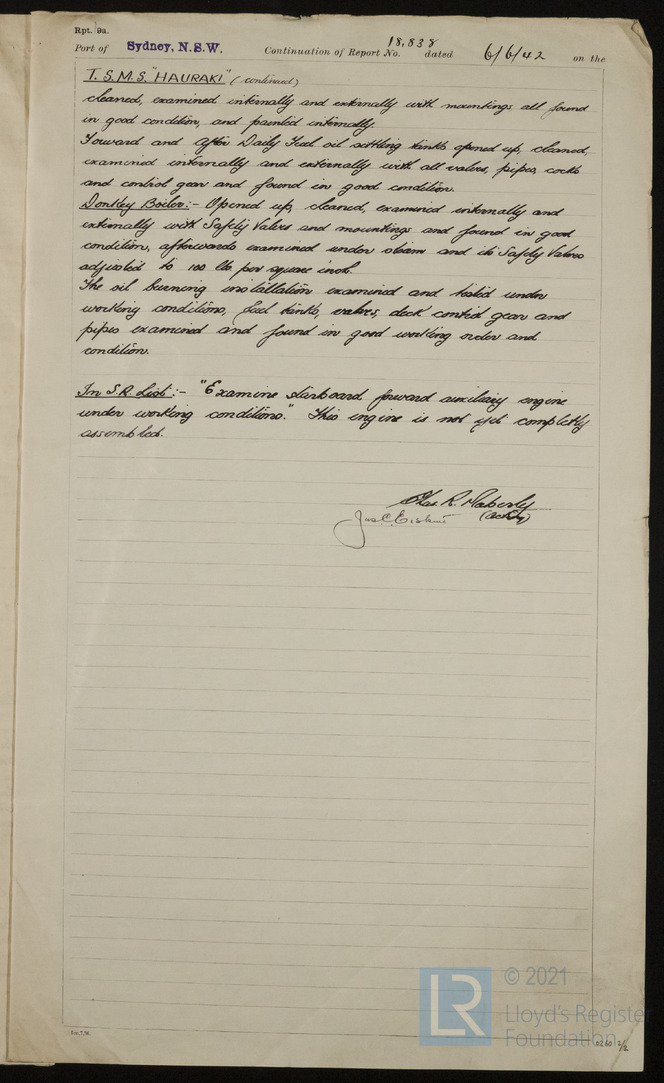 Rpt. 9a.
Port of Sydney, N.S.W. Continuation of Report No. 18,838 dated 6/6/42 on the
T.S.M.S. "HAURAKI" (continued)
cleaned, examined internally and externally with mountings all found
in good condition, and painted internally.
Forward and After Daily Fuel oil settling tanks opened up, cleaned,
examined internally and externally with all valves, pipes, cocks
and control gear and found in good condition.
Donkey Boiler:- Opened up, cleaned, examined internally and
externally with Safety Valves and mountings and found in good
condition, afterwards examined under steam and its Safety Valves
adjusted to 100 lbs per square inch.
The oil burning installation examined and tested under
working conditions, fuel tanks, valves, deck control gear and
pipes examined and found in good working order and
condition.
In S.R. List:- "Examine starboard forward auxiliary engine
under working conditions." This engine is not yet completly
assembled.
Chas R.
(Acting)
© 2021
LR
Lloyd's Register
Foundation
0260 2/2